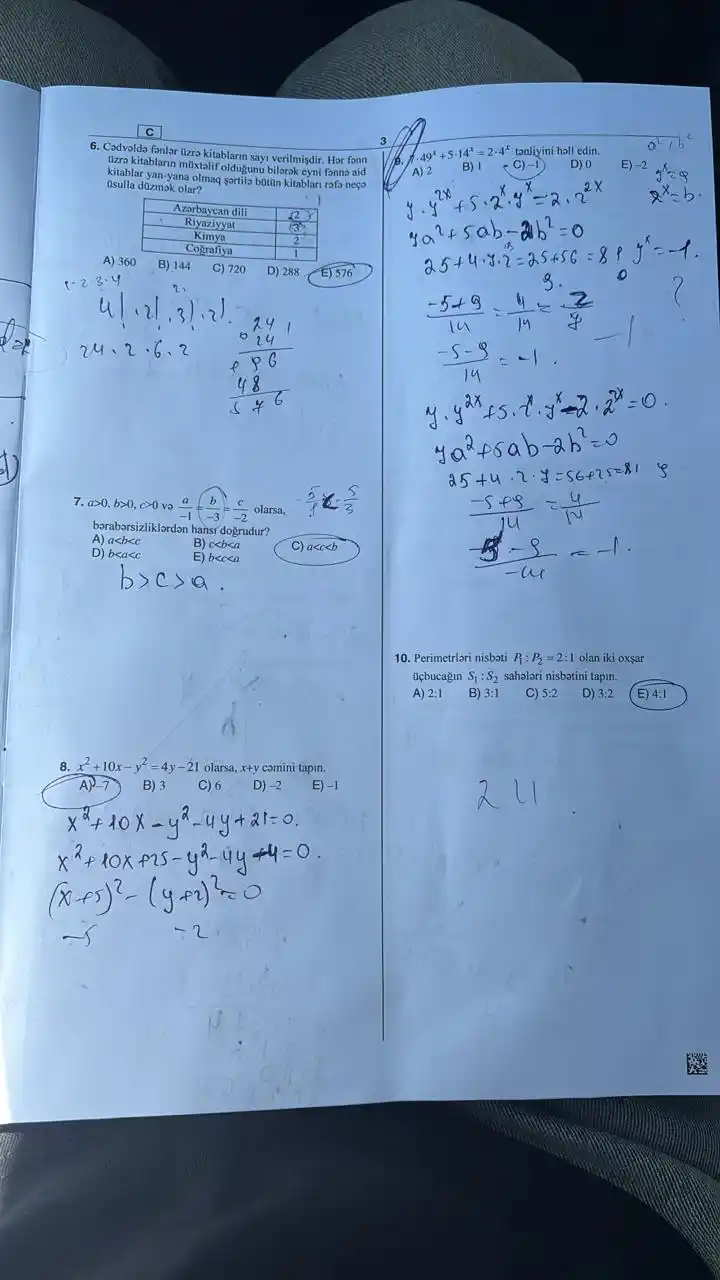 C
3
6. Cədvəldə fənlər üzrə kitabların sayı verilmişdir. Hər fənn
üzrə kitabların müxtəlif olduğunu bilərək eyni fənnə aid
kitablar yan-yana olmaq şərtilə bütün kitabları rəfə neçə
üsulla düzmək olar?
Azərbaycan dili 2
Riyaziyyat 3
Kimya 2
Coğrafiya 1
A) 360 B) 144 C) 720 D) 288 E) 576
1-2 3.4
4! . 2! . 3! . 2!
24 . 2 . 6 . 2
24
24
96
48
576
7. a>0, b>0, c>0 və a/-1 = b/-3 = c/-2 olarsa,
bərabərsizliklərdən hansı doğrudur?
A) a<b<c B) c<b<a C) a<c<b
D) b<a<c E) b<c<a
b>c>a.
8. x² +10x− y² = 4y−21 olarsa, x+y cəmini tapın.
A) −7 B) 3 C) 6 D) −2 E) −1
x²+10x−y²−4y+21=0.
x²+10x+25−y²−4y−4=0.
(x+5)²−(y+2)²=0
−5 −2
9. 7·49ˣ+5·14ˣ = 2·4ˣ tənliyini həll edin.
A) 2 B) 1 C) −1 D) 0 E) −2
7ˣ=a
2ˣ=b.
7.7²ˣ+5.2ˣ.7ˣ=2.2²ˣ
7a²+5ab−2b²=0
25+4.7.2=25+56=81 7ˣ=−1.
9.
−5+9/14=4/14=2/7
?
−5−9/14=−1.
−1
7.7²ˣ+5.2ˣ.7ˣ−2.2²ˣ=0.
7a²+5ab−2b²=0
25+4.2.7=56+25=81 9
−5+9/14=4/14
−5−9/−14=−1.
10. Perimetrləri nisbəti P₁ : P₂ = 2:1 olan iki oxşar
üçbucağın S₁ : S₂ sahələri nisbətini tapın.
A) 2:1 B) 3:1 C) 5:2 D) 3:2 E) 4:1